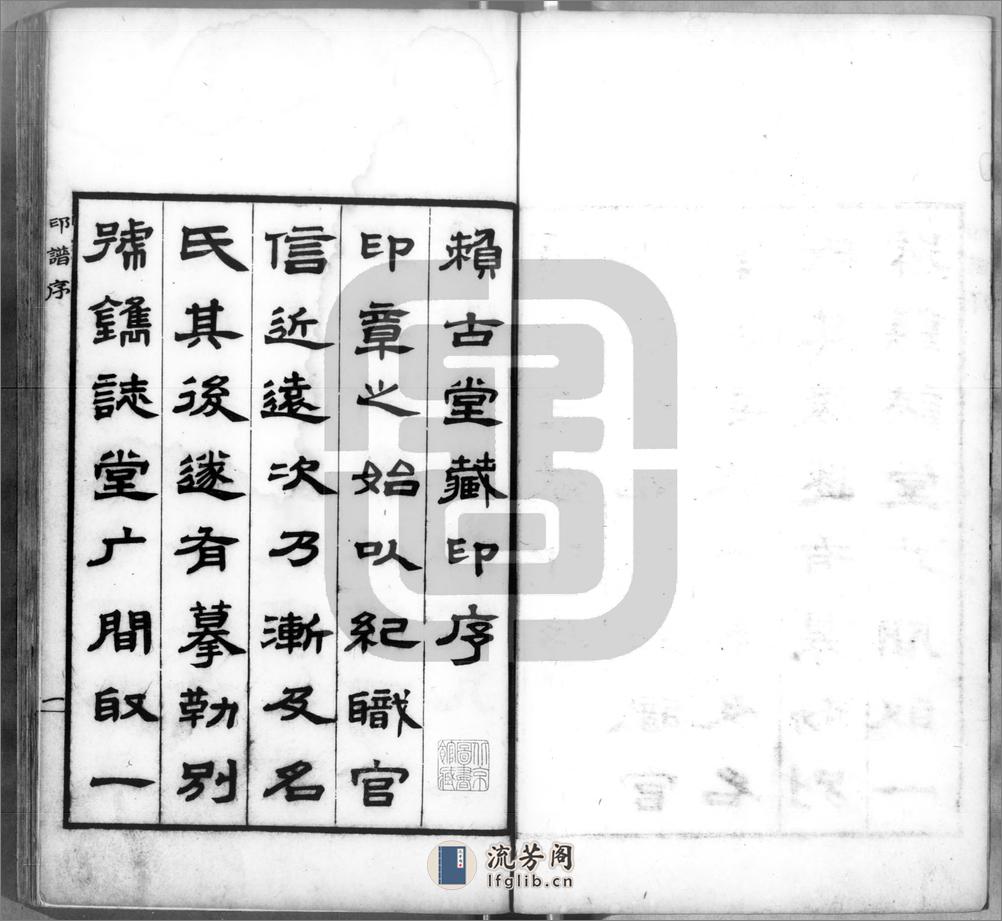 賴古堂藏印序
印章之始以紀職官
信近遠次乃漸及名
氏其後遂有摹勒別
號鐫誌堂广間取一
印譜序
一
流芳阁
lfglib.cn